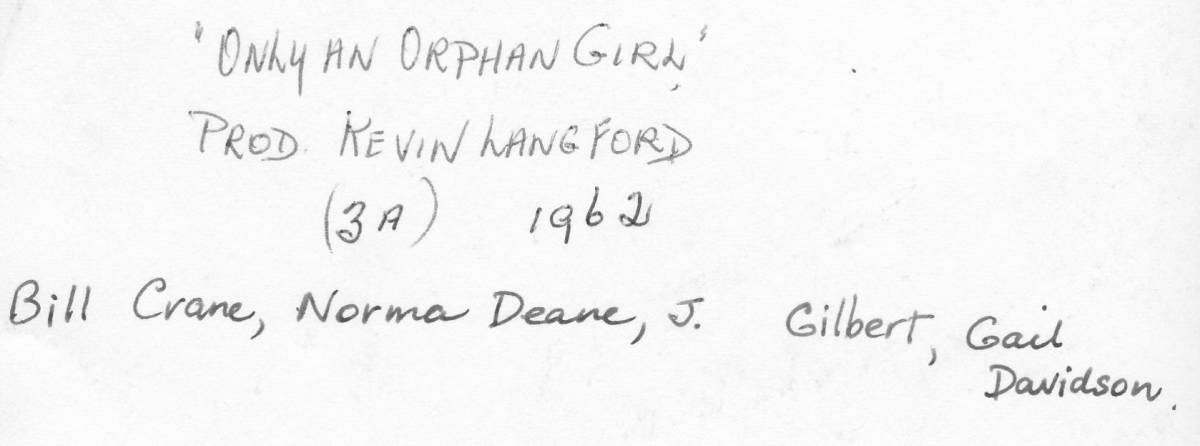 "ONLY AN ORPHAN GIRL"
PROD. KEVIN LANGFORD
(3A) 1962
Bill Crane, Norma Deane, J. Gilbert, Gail
Davidson.